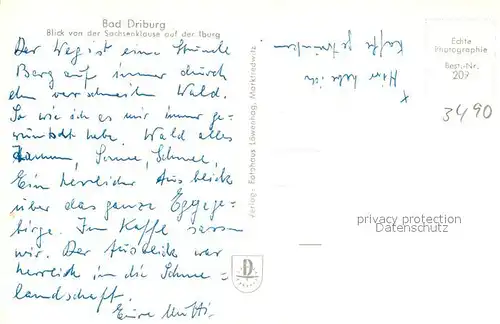 Bad Driburg
Blick von der Sachsenklause auf der Iburg
Der Weg ist eine Stunde
Berg auf immer durch
den verschneiten Wald.
So wie ich es mir immer ge-
wünscht habe. Wald alles
Tannen, Sonne, Schnee,
Ein herrlicher Ausblick
über das ganze Eggege-
birge. Im Kaffe sassen
wir. Der Ausblick war
herrlich in die Schnee-
landschaft.
Eure Mutti.
Verlag: Fotohaus Löwenhag, Marktredwitz
D
x Hier habe ich
Kaffe getrunken
Echte
Photographie
Best.-Nr.
209
3490
privacy protection
Datenschutz